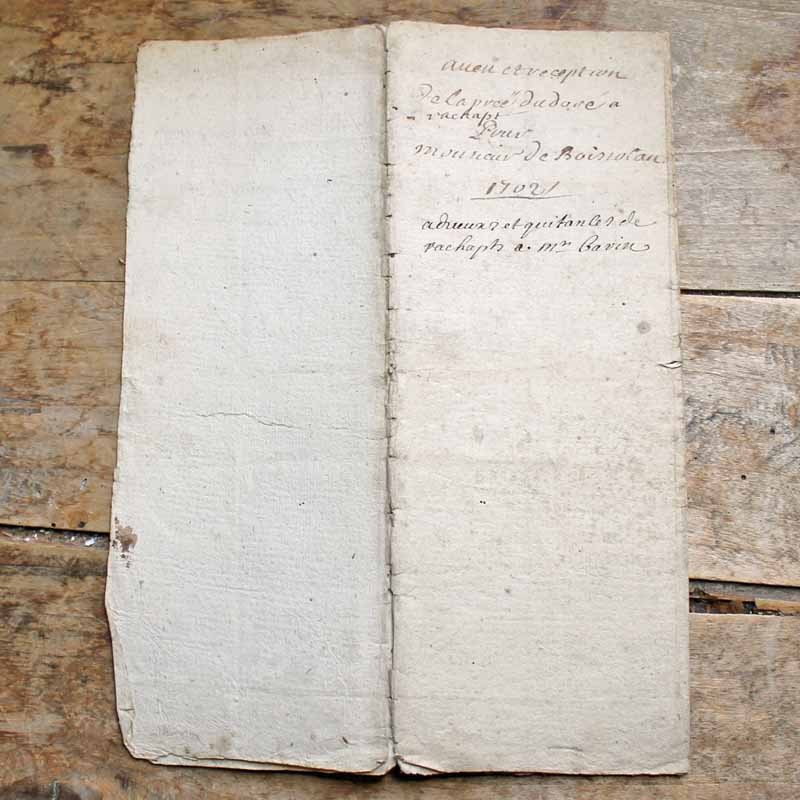 aueu et reception
de la preé du doré a
rachapt
Pour
monsieur de Boissolan
1702
adueux et quitances de
rachapts a Mr Gavin